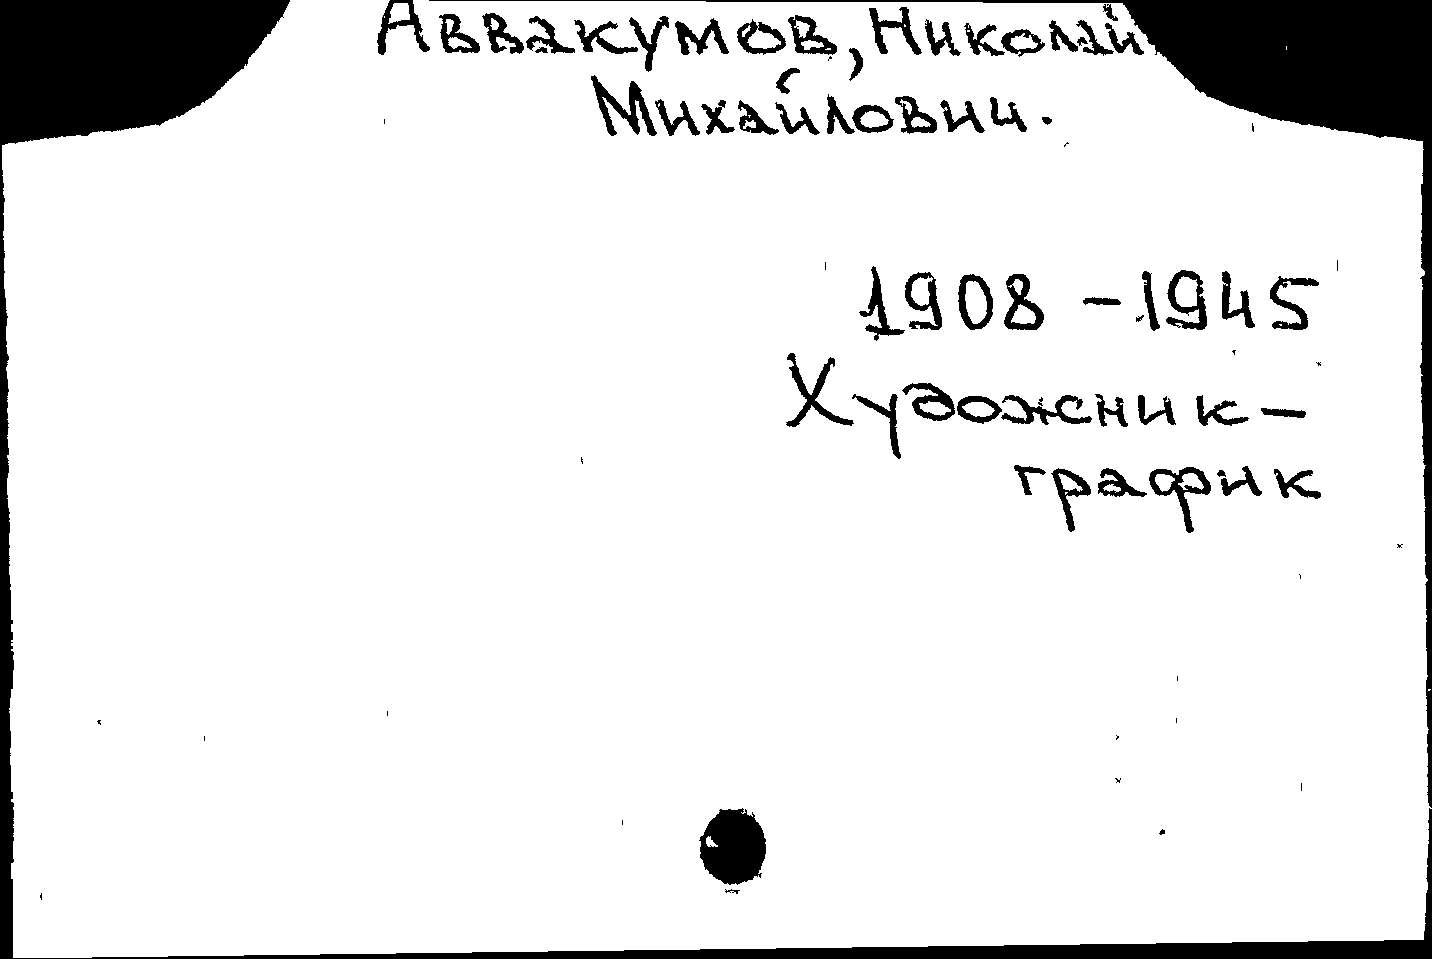 Аввакумов, Николай
Михайлович.
1908 - 1945
Художник-
график